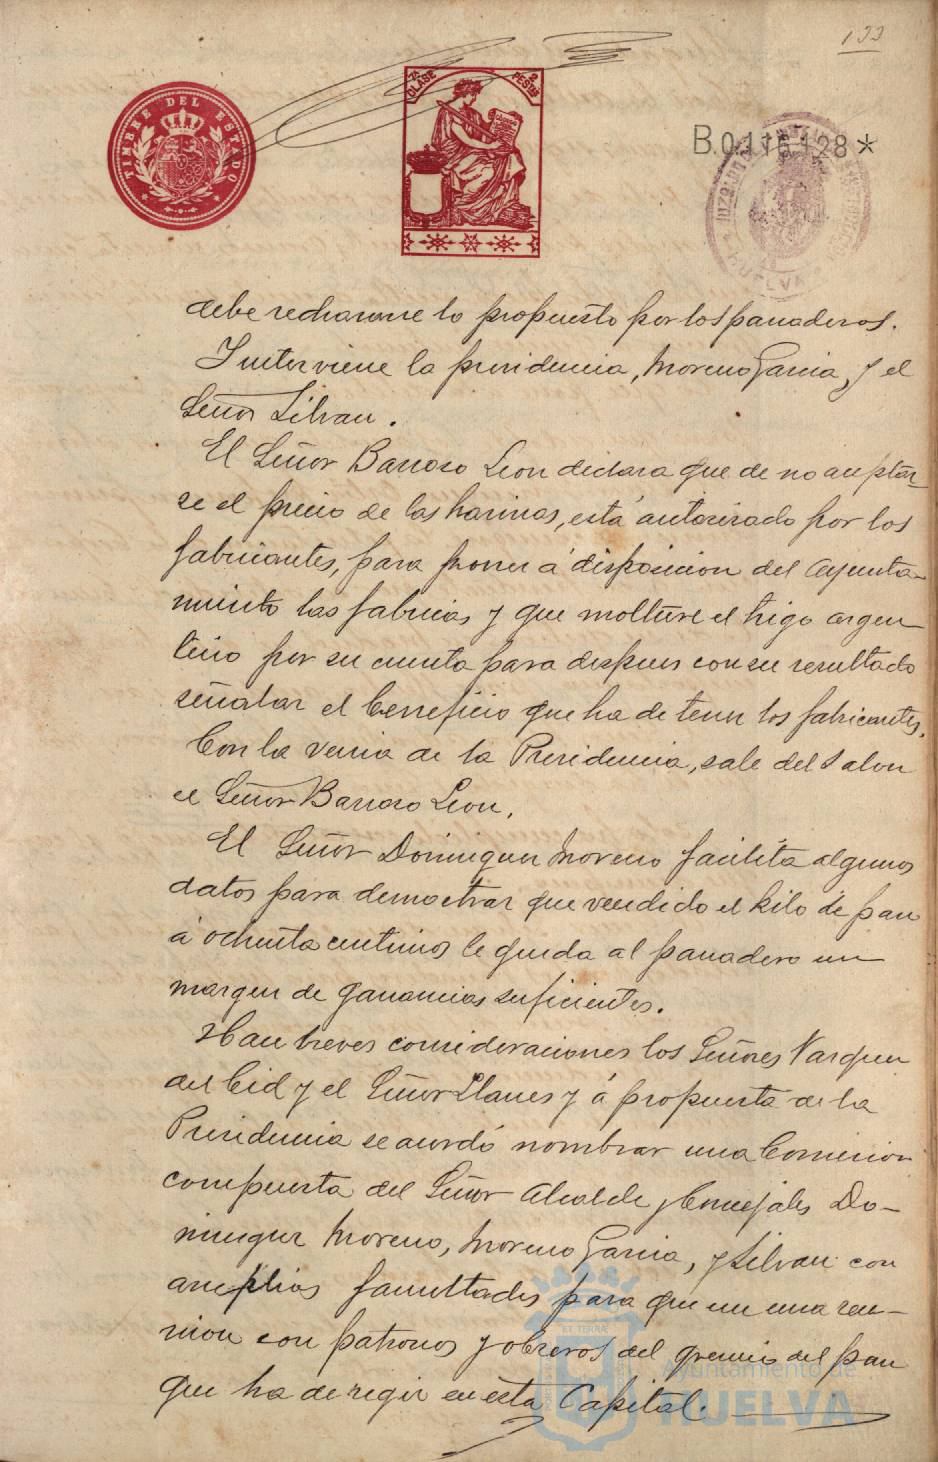 133
TIMBRE DEL ESTADO
7ª CLASE 2 PESTAS
B.0.116.128*
HUELVA
debe recharase lo propuesto por los panaderos.
Interviene la presidencia, Moreno Garcia, y el
Señor Silvan.
El Señor Barroso Leon declara que de no aceptar-
se el precio de las harinas, está autorizado por los
fabricantes, para poner á disposicion del Ayunta-
miento las fabricas y que molture el trigo argen
tino por su cuenta para despues con su resultado
señalar el beneficio que ha de tener los fabricantes.
Con la venia de la Presidencia, sale del Salon
el Señor Barroso Leon.
El Señor Dominguez Moreno facilita algunos
datos para demostrar que vendido el kilo de pan
á ochenta centimos le queda al panadero un
margen de ganancias suficientes.
Hacen breves consideraciones los Señores Vazquez
del Cid y el Señor Llanes y á propuesta de la
Presidencia se acordó nombrar una Comision
compuesta del Señor Alcalde y Concejales Do-
minguez Moreno, Moreno Garcia, y Silvan con
amplias facultades para que en una reu-
nion con patronos y obreros del gremio del pan
que ha de regir en esta Capital.
Ayuntamiento de
HUELVA